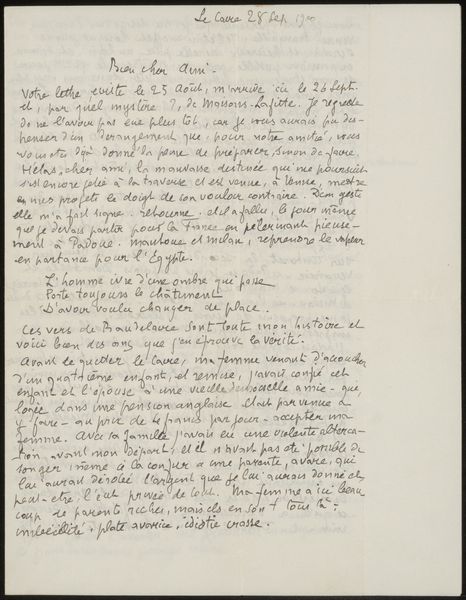 Le Caire 28 Sep. 1900
Bien cher Ami.
Votre lettre écrite le 25 Août, m'arrive ici le 26 Sept.
et, par quel mystère ?, de Maisons-Lafitte. Je regrette
de ne l'avoir pas eue plus tôt, car je vous aurais pu dis-
penser d'un dérangement que, pour notre amitié, vous
vous êtes déjà donné la peine de préparer, sinon de faire.
Hélas, cher ami, la mauvaise destinée qui me poursuit
s'est encore jetée à la traverse et est venue, à Venise, mettre
en mes projets le doigt de son vouloir contraire. D'un geste
elle m'a fait signe : retourne. et il a fallu, le jour même
que je devais partir pour la France en pélerinant pieuse-
ment à Padoue. mantoue et milan, reprendre le vapeur
en partance pour l'Égypte.
L'homme ivre d'une ombre qui passe
Porte toujours le châtiment
D'avoir voulu changer de place.
Ces vers de Baudelaire sont toute mon histoire et
voici bien des ans que j'en éprouve la vérité.
Avant de quitter le Caire, ma femme venant d'accoucher
d'un quatrième enfant, et remise, j'avais confié cet
enfant et l'épouse à une vieille demoiselle amie - qui,
logée dans une pension anglaise était parvenue à
y faire - au prix de francs par jour - accepter ma
femme. Avec sa famille j'avais eu une violente alterca-
tion avant mon départ, et il n'avait pas été possible de
songer même à la confier à une parente, avare, qui
lui aurait dérobé l'argent que je lui aurais donné et
peut-être l'eut privée de tout. Ma femme a ici beau
coup de parents riches, mais ils en sont tous là :
imbécillité, plate avarice, idiotie crasse.